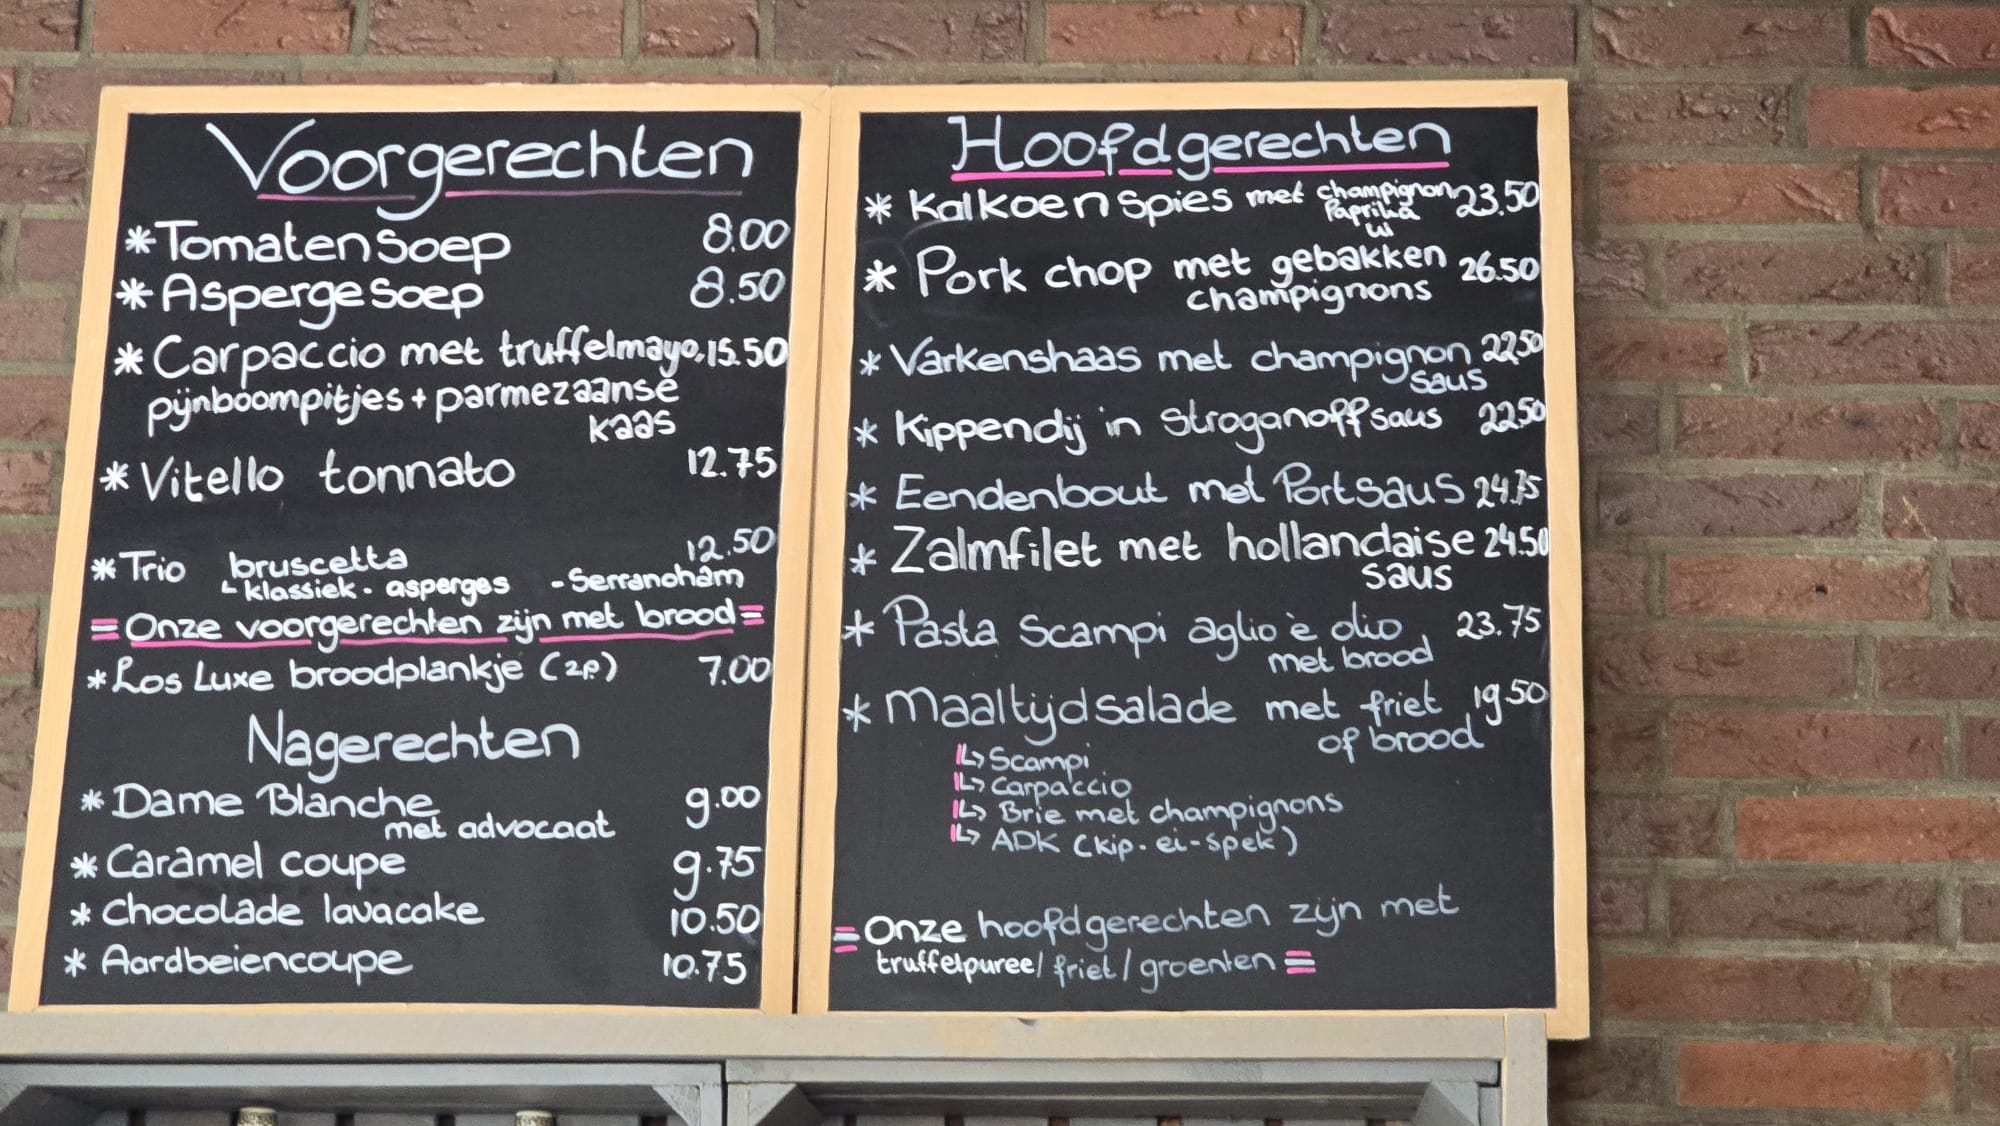 Voorgerechten
* Tomatensoep 8.00
* Aspergesoep 8.50
* Carpaccio met truffelmayo, 15.50
pijnboompitjes + parmezaanse
kaas
* Vitello tonnato 12.75
* Trio bruscetta 12.50
↳ klassiek - asperges - Serranoham
= Onze voorgerechten zijn met brood =
* Los Luxe broodplankje (2P.) 7.00
Nagerechten
* Dame Blanche 9.00
met advocaat
* Caramel coupe 9.75
* Chocolade lavacake 10.50
* Aardbeiencoupe 10.75
Hoofdgerechten
* Kalkoenspies met champignon 23.50
Paprika
ui
* Pork chop met gebakken 26.50
champignons
* Varkenshaas met champignon 22.50
saus
* Kippendij in Stroganoffsaus 22.50
* Eendenbout met Portsaus 24.75
* Zalmfilet met hollandaise 24.50
saus
* Pasta Scampi aglio è olio, 23.75
met brood
* Maaltijdsalade met friet 19.50
of brood
↳ Scampi
↳ Carpaccio
↳ Brie met champignons
↳ ADK (kip - ei - spek)
= Onze hoofdgerechten zijn met
truffelpuree / friet / groenten =